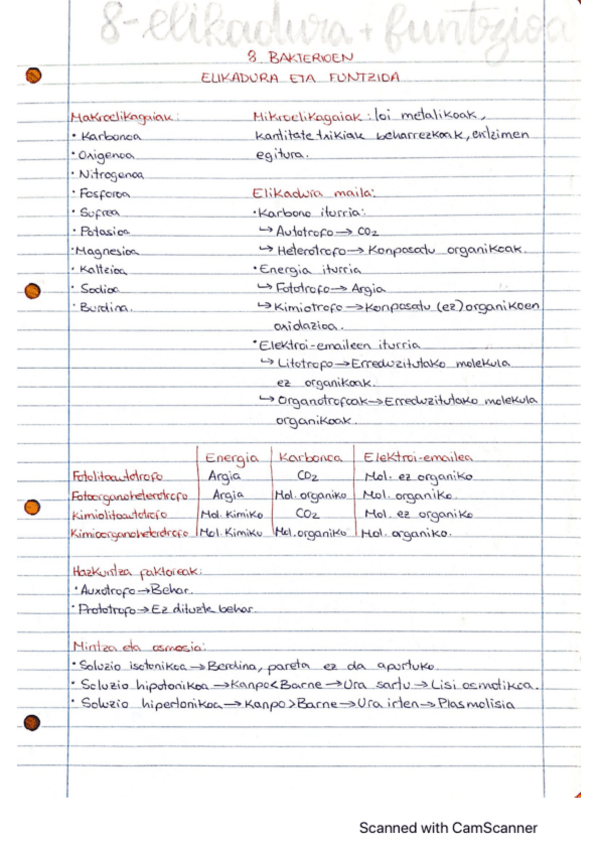 8-elikadura + funtzioa
8. BAKTERIOEN
ELIKADURA ETA FUNTZIOA
Makroelikagaiak:
• Karbonoa
• Oxigenoa
• Nitrogenoa
• Fosforoa
• Sufrea
• Potasioa
• Magnesioa
• Kaltzioa
• Sodioa
• Burdina.
Mikroelikagaiak: Ioi metalikoak,
kantitate txikiak beharrezkoak, entzimen
egitura.
Elikadura maila:
• Karbono iturria:
↳ Autotrofo → CO2
↳ Heterotrofo → Konposatu organikoak.
• Energia iturria
↳ Fototrofo → Argia
↳ Kimiotrofo → Konposatu (ez) organikoen
oxidazioa.
• Elektroi-emaileen iturria
↳ Litotrofo → Erreduzitutako molekula
ez organikoak.
↳ Organotrofoak → Erreduzitutako molekula
organikoak.
Energia Karbonoa Elektroi-emailea
Fotolitoautotrofo Argia CO2 Mol. ez organiko
Fotoorganoheterotrofo Argia Mol. organiko Mol. organiko.
Kimiolitoautotrofo Mol. Kimiko CO2 Mol. ez organiko
Kimioorganoheterotrofo Mol. Kimiko Mol. organiko Mol. organiko.
Hazkuntza faktoreak:
• Auxotrofo → Behar.
• Prototrofo → Ez dituzte behar.
Mintza eta osmosia:
• Soluzio isotonikoa → Berdina, pareta ez da apurtuko.
• Soluzio hipotonikoa → Kanpo < Barne → Ura sartu → Lisi osmotikoa.
• Soluzio hipertonikoa → Kanpo > Barne → Ura irten → Plasmolisia
Scanned with CamScanner